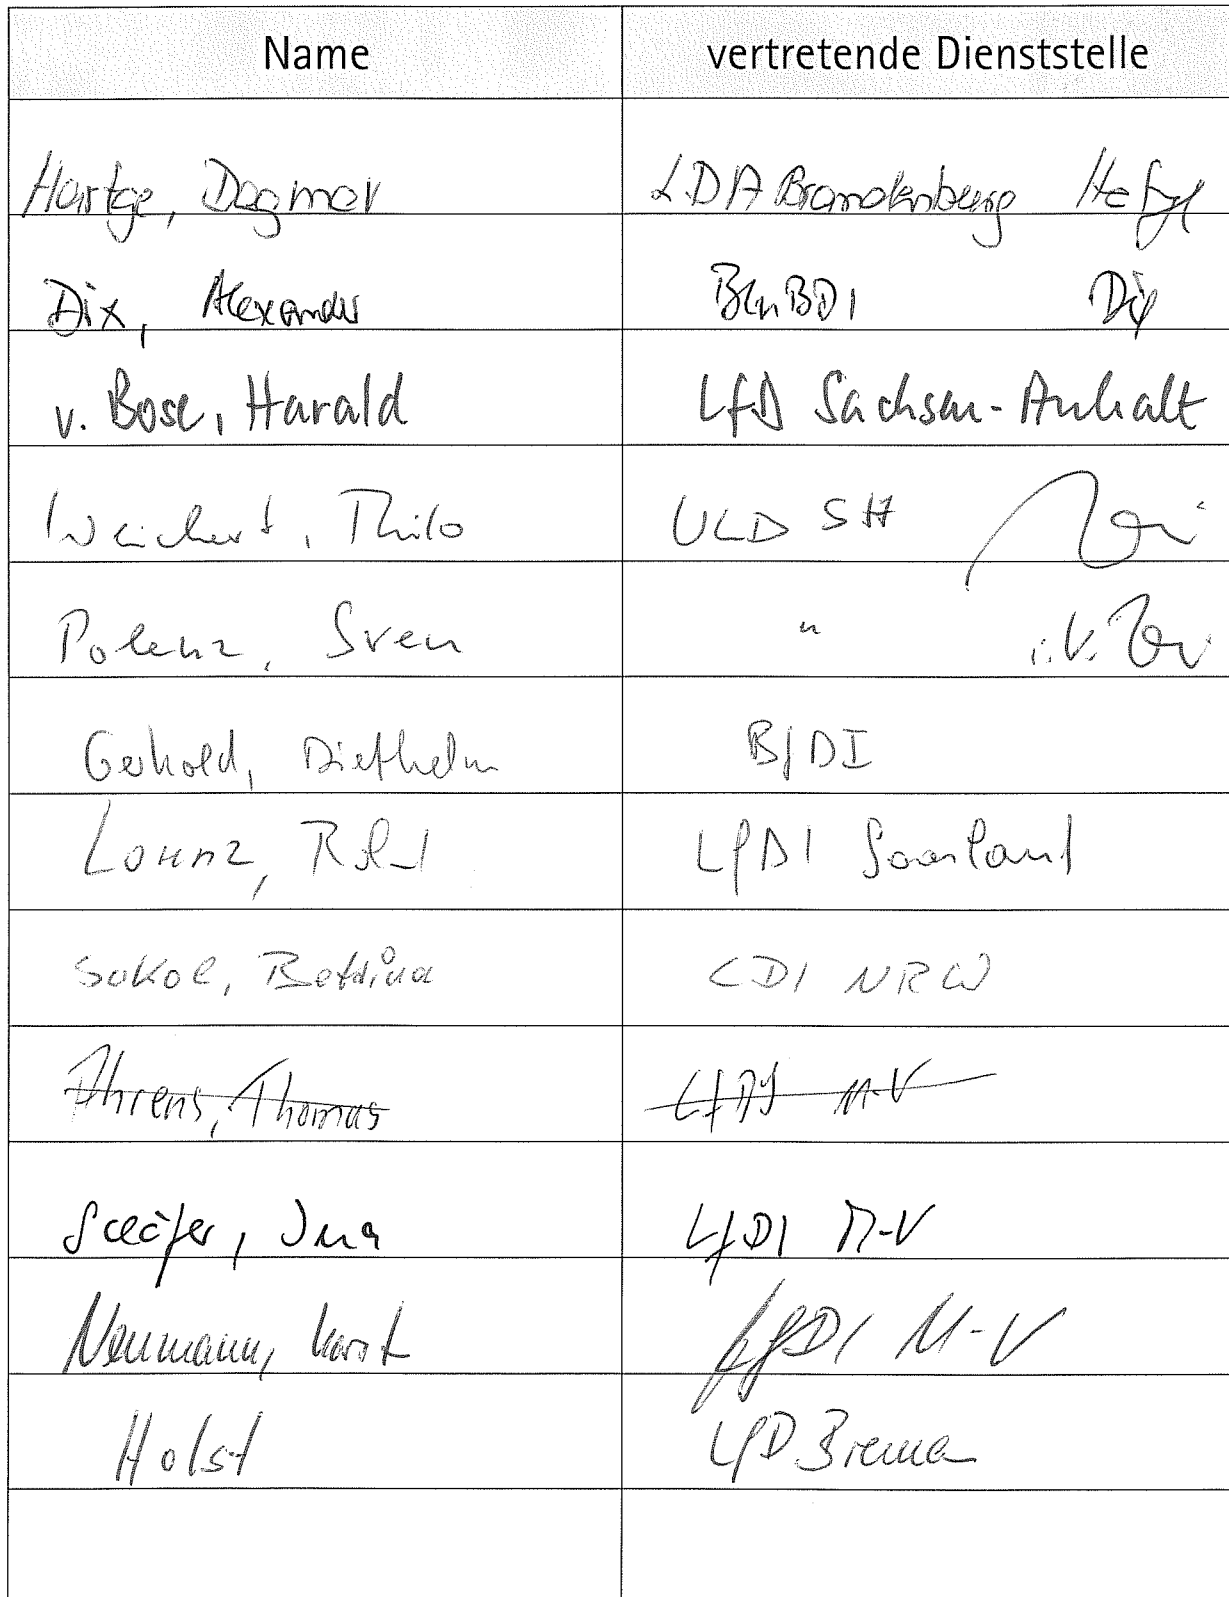 Name vertretende Dienststelle
Hartge, Dagmar LDA Brandenburg
Dix, Alexander BlnBDI Dix
v. Bose, Harald LfD Sachsen-Anhalt
Weichert, Thilo ULD SH
Polenz, Sven " i.V.
Gerhold, Diethelm BfDI
Lorenz, LfDI Saarland
Sokol, Bettina LDI NRW
Ahrens, Thomas LfDI M-V
Schäfer, Ina LfDI M-V
Neumann, Karst LfDI M-V
Holst LfD Bremen